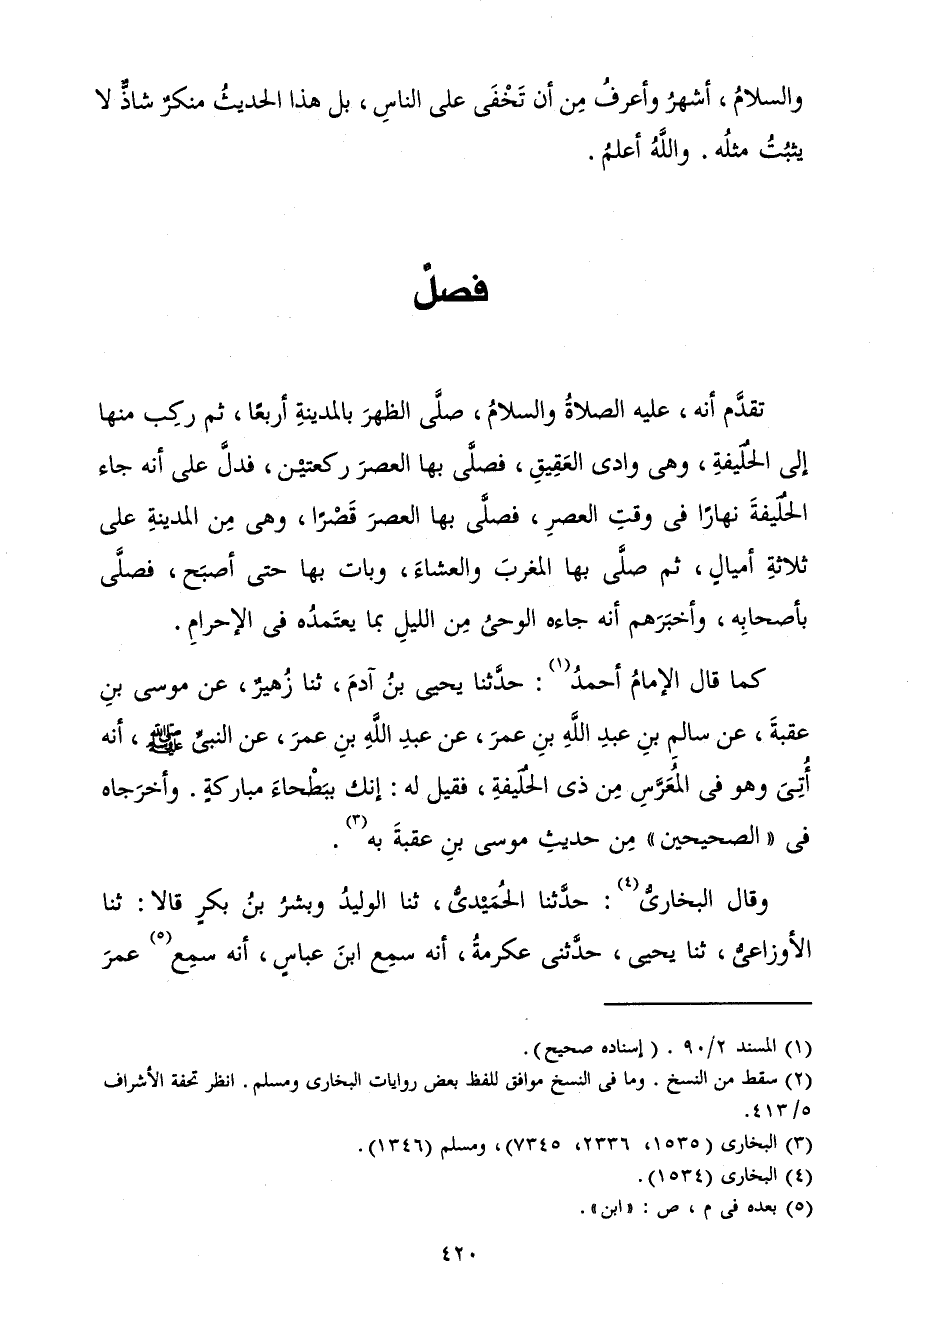 والسلامُ ، أشهرُ وأعرفُ مِن أن تَخْفَى على الناسِ ، بل هذا الحديثُ منكرٌ شاذٌّ لا
يثبُتُ مثلُه . واللَّهُ أعلمُ .
فصلٌ
تقدَّم أنه ، عليه الصلاةُ والسلامُ ، صلَّى الظهرَ بالمدينةِ أربعًا ، ثم ركِب منها
إلى الحُلَيفةِ ، وهى وادى العَقِيقِ ، فصلَّى بها العصرَ ركعتَيْن ، فدلَّ على أنه جاء
الحُلَيفةَ نهارًا فى وقتِ العصرِ ، فصلَّى بها العصرَ قَصْرًا ، وهى مِن المدينةِ على
ثلاثةِ أميالٍ ، ثم صلَّى بها المغربَ والعشاءَ ، وبات بها حتى أصبَح ، فصلَّى
بأصحابِه ، وأخبَرَهم أنه جاءه الوحىُ مِن الليلِ بما يعتَمدُه فى الإحرامِ .
كما قال الإمامُ أحمدُ(١) : حدَّثنا يحيى بنُ آدمَ ، ثنا زُهيرٌ ، عن موسى بنِ
عقبةَ ، عن سالمِ بنِ عبدِ اللَّهِ بنِ عمرَ ، عن عبدِ اللَّهِ بنِ عمرَ ، عن النبىِّ ﷺ ، أنه
أُتِىَ وهو فى المُعَرَّسِ مِن ذى الحُلَيفةِ ، فقيل له : إنك ببَطْحاءَ مباركةٍ . وأخرَجاه
فى « الصحيحين » مِن حديثِ موسى بنِ عقبةَ به(٣) .
وقال البخارىُّ(٤) : حدَّثنا الحُمَيْدىُّ ، ثنا الوليدُ وبشرُ بنُ بكرٍ قالا : ثنا
الأوزاعىُّ ، ثنا يحيى ، حدَّثنى عكرمةُ ، أنه سمِع ابنَ عباسٍ ، أنه سمِع(٥) عمرَ
(١) المسند ٩٠/٢ . ( إسناده صحيح ) .
(٢) سقط من النسخ . وما فى النسخ موافق للفظ بعض روايات البخارى ومسلم . انظر تحفة الأشراف
٤١٣/٥.
(٣) البخارى ( ١٥٣٥، ٢٣٣٦، ٧٣٤٥) ، ومسلم (١٣٤٦) .
(٤) البخارى (١٥٣٤) .
(٥) بعده فى م ، ص : « ابن » .
٤٢٠